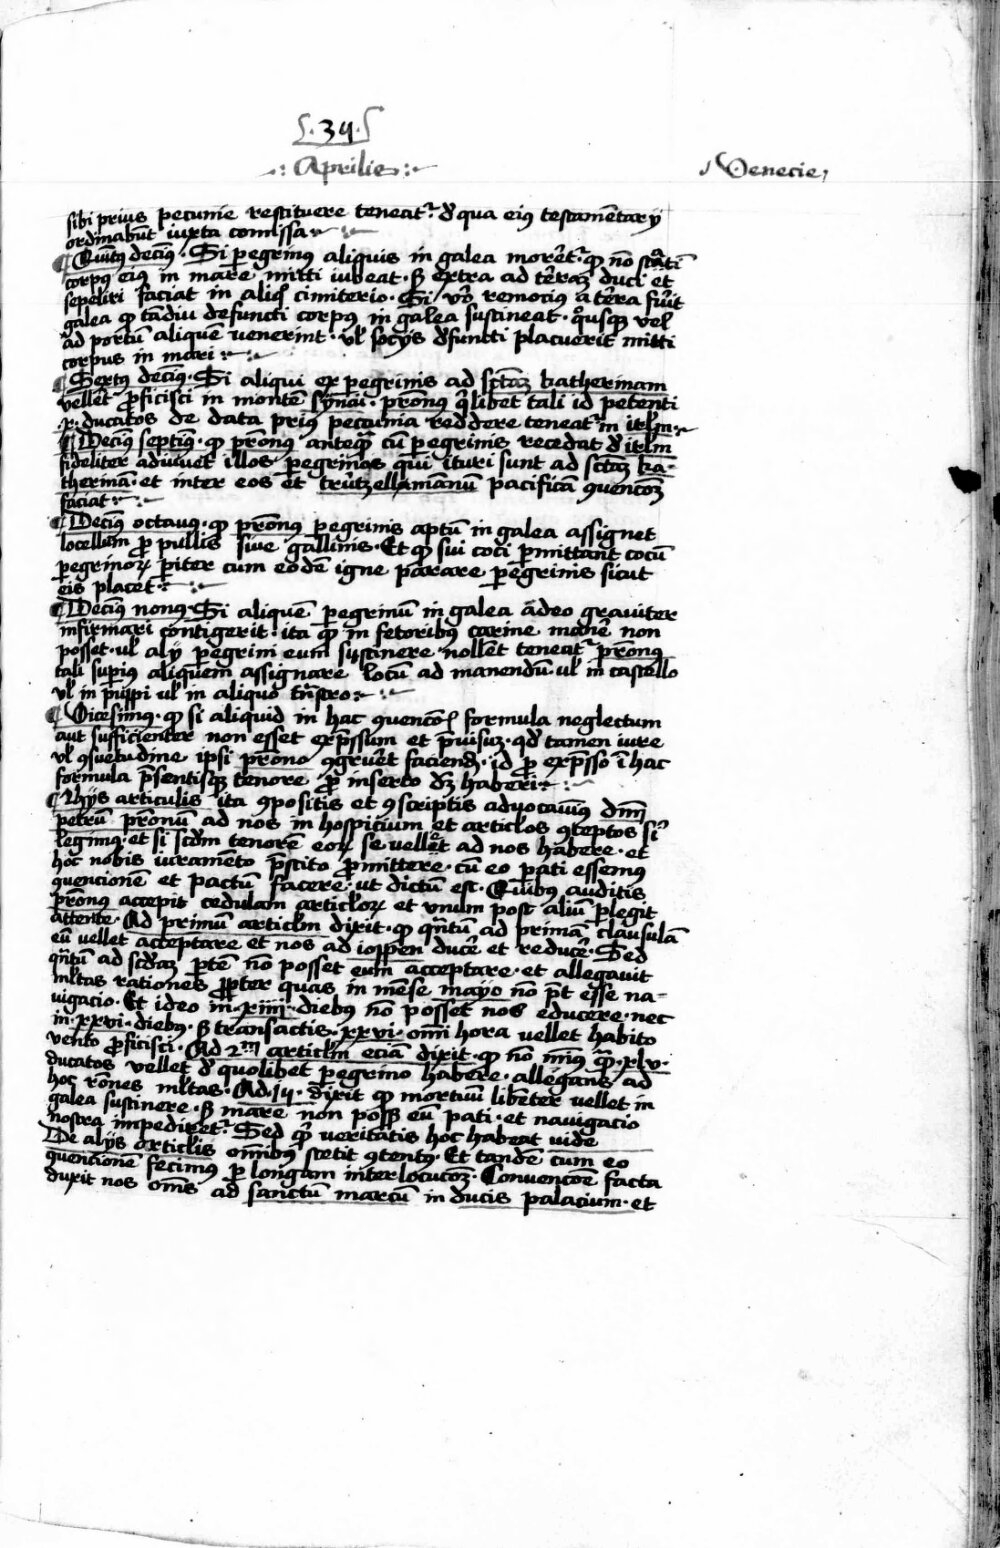 34
Aprilis
Venecie
sibi prius pecunie restituere teneatr̃ de qua eius testamẽtarÿ
ordinabũt iuxta comissa
Quĩtus deciũs. Si pegrinus aliquis in galea moret̃r qͥ nõ statĩ
corpus eius in mare mitti iubeat. sꝫ extra ad terrã duci et
sepeliri faciat in aliqͦ cimiterio. Si v̾o remocius a terra fuĩt
galea qͥ tãdiu defuncti corpus in galea sustineat. qͦusqꝫ vel
ad portũ aliquẽ venerint. vl̃ socÿs defuncti placuerit mitti
corpus in mari
Sextus deciũs. Si aliqui ex pegrinis ad sctãꝫ katherinam
vellet̃ proficisci in montẽ synai. pronus qͥlibet tali id petenti
.x. ducatos de data prius pecunia reddere teneatr̃ in irl̃m
Deciũs septiũs. qͥ pronus anteqꝫ cũ pegrinis recedat de irl̃m
fideliter adiuvet illos pegrinos qui ituri sunt ad sctãꝫ ka-
therinã. et inter eos et trutzellamãnũ pacificã quencoꝫ
faciat
Deciũs octavus. qͥ pronus pegrinis aptũ in galea assignet
locellum pro pullis sive gallinis. Et qͥ sui coci permittant cocũ
pegrinorꝫ pariter cum eodẽ igne parare pegrinis sicut
eis placet
Deciũs nonus. Si aliquẽ pegrinũ in galea adeo graviter
infirmari contigerit. ita qͥ in fetoribus carine manẽ non
posset. vl̃ alÿ pegrini eum sustinere nollet̃ teneatr̃ pronus
tali superius aliquem assignare locũ ad manendũ. vl̃ in castello
vl̃ in puppi vl̃ in aliquo tr̃nstro
Vicesimus. qͥ si aliquid in hac quencoꝫ formula neglectum
aut sufficienter non esset expressum et previsuꝫ. qd̃ tamen iure
vl̃ ꝯsuetudine ipsi prono ꝯgruet faciendꝫ. id pro expresso ĩ hac
formula presentisqꝫ tenore pro inserto dꝫ haberi
Hÿs articulis ita ꝯpositis et ꝯscriptis advocavius dm̃
petrũ pronũ ad nos in hospicium et articlos ꝯceptos sͥ
legimus. et si scd̃m tenorẽ eorꝫ se vellet ad nos habere. et
hoc nobis iuramẽto prestito promittere. cũ eo pati essemus
quencionẽ et pactũ facere. ut dictũ est. Quibus auditis
pronus accepit cedulam articlorꝫ et unum post aliũ perlegit
attente. Ad primũ articlm̃ dixit. qͥ qñtũ ad primã clausulã
eũ vellet acceptare et nos ad ioppen ducẽ et reducẽ. Sed
qñtũ ad scdãꝫ partẽ nõ posset eum acceptare. et allegavit
ml̃tas rationes propter quas in mẽse mayo nõ pt̃ esse na-
vigacio. Et ideo in .xiiij. diebus nõ posset nos educere. nec
in .xxvi. diebus. sꝫ transactis .xxvi. omĩ hora vellet habito
vento proficisci. Ad 2m articlm̃ eciã dixit. qͥ nõ mĩus quã .xlv.
ducatos vellet de quolibet pegrino habere. allegans ad
hoc rões ml̃tas. Ad .14. dixit qͥ mortuũ libenter vellet in
galea sustinere. sꝫ mare non possꝫ eũ pati. et navigacio
nostra impediretr̃. Sed quid veritatis hoc habeat vide
De alÿs articlis omĩbus stetit ꝯtentus. Et tandẽ cum eo
quencionẽ fecimus per longam interlocucoꝫ. Convencõe facta
duxit nos om̃s ad sanctũ marcũ in ducis palacium. et